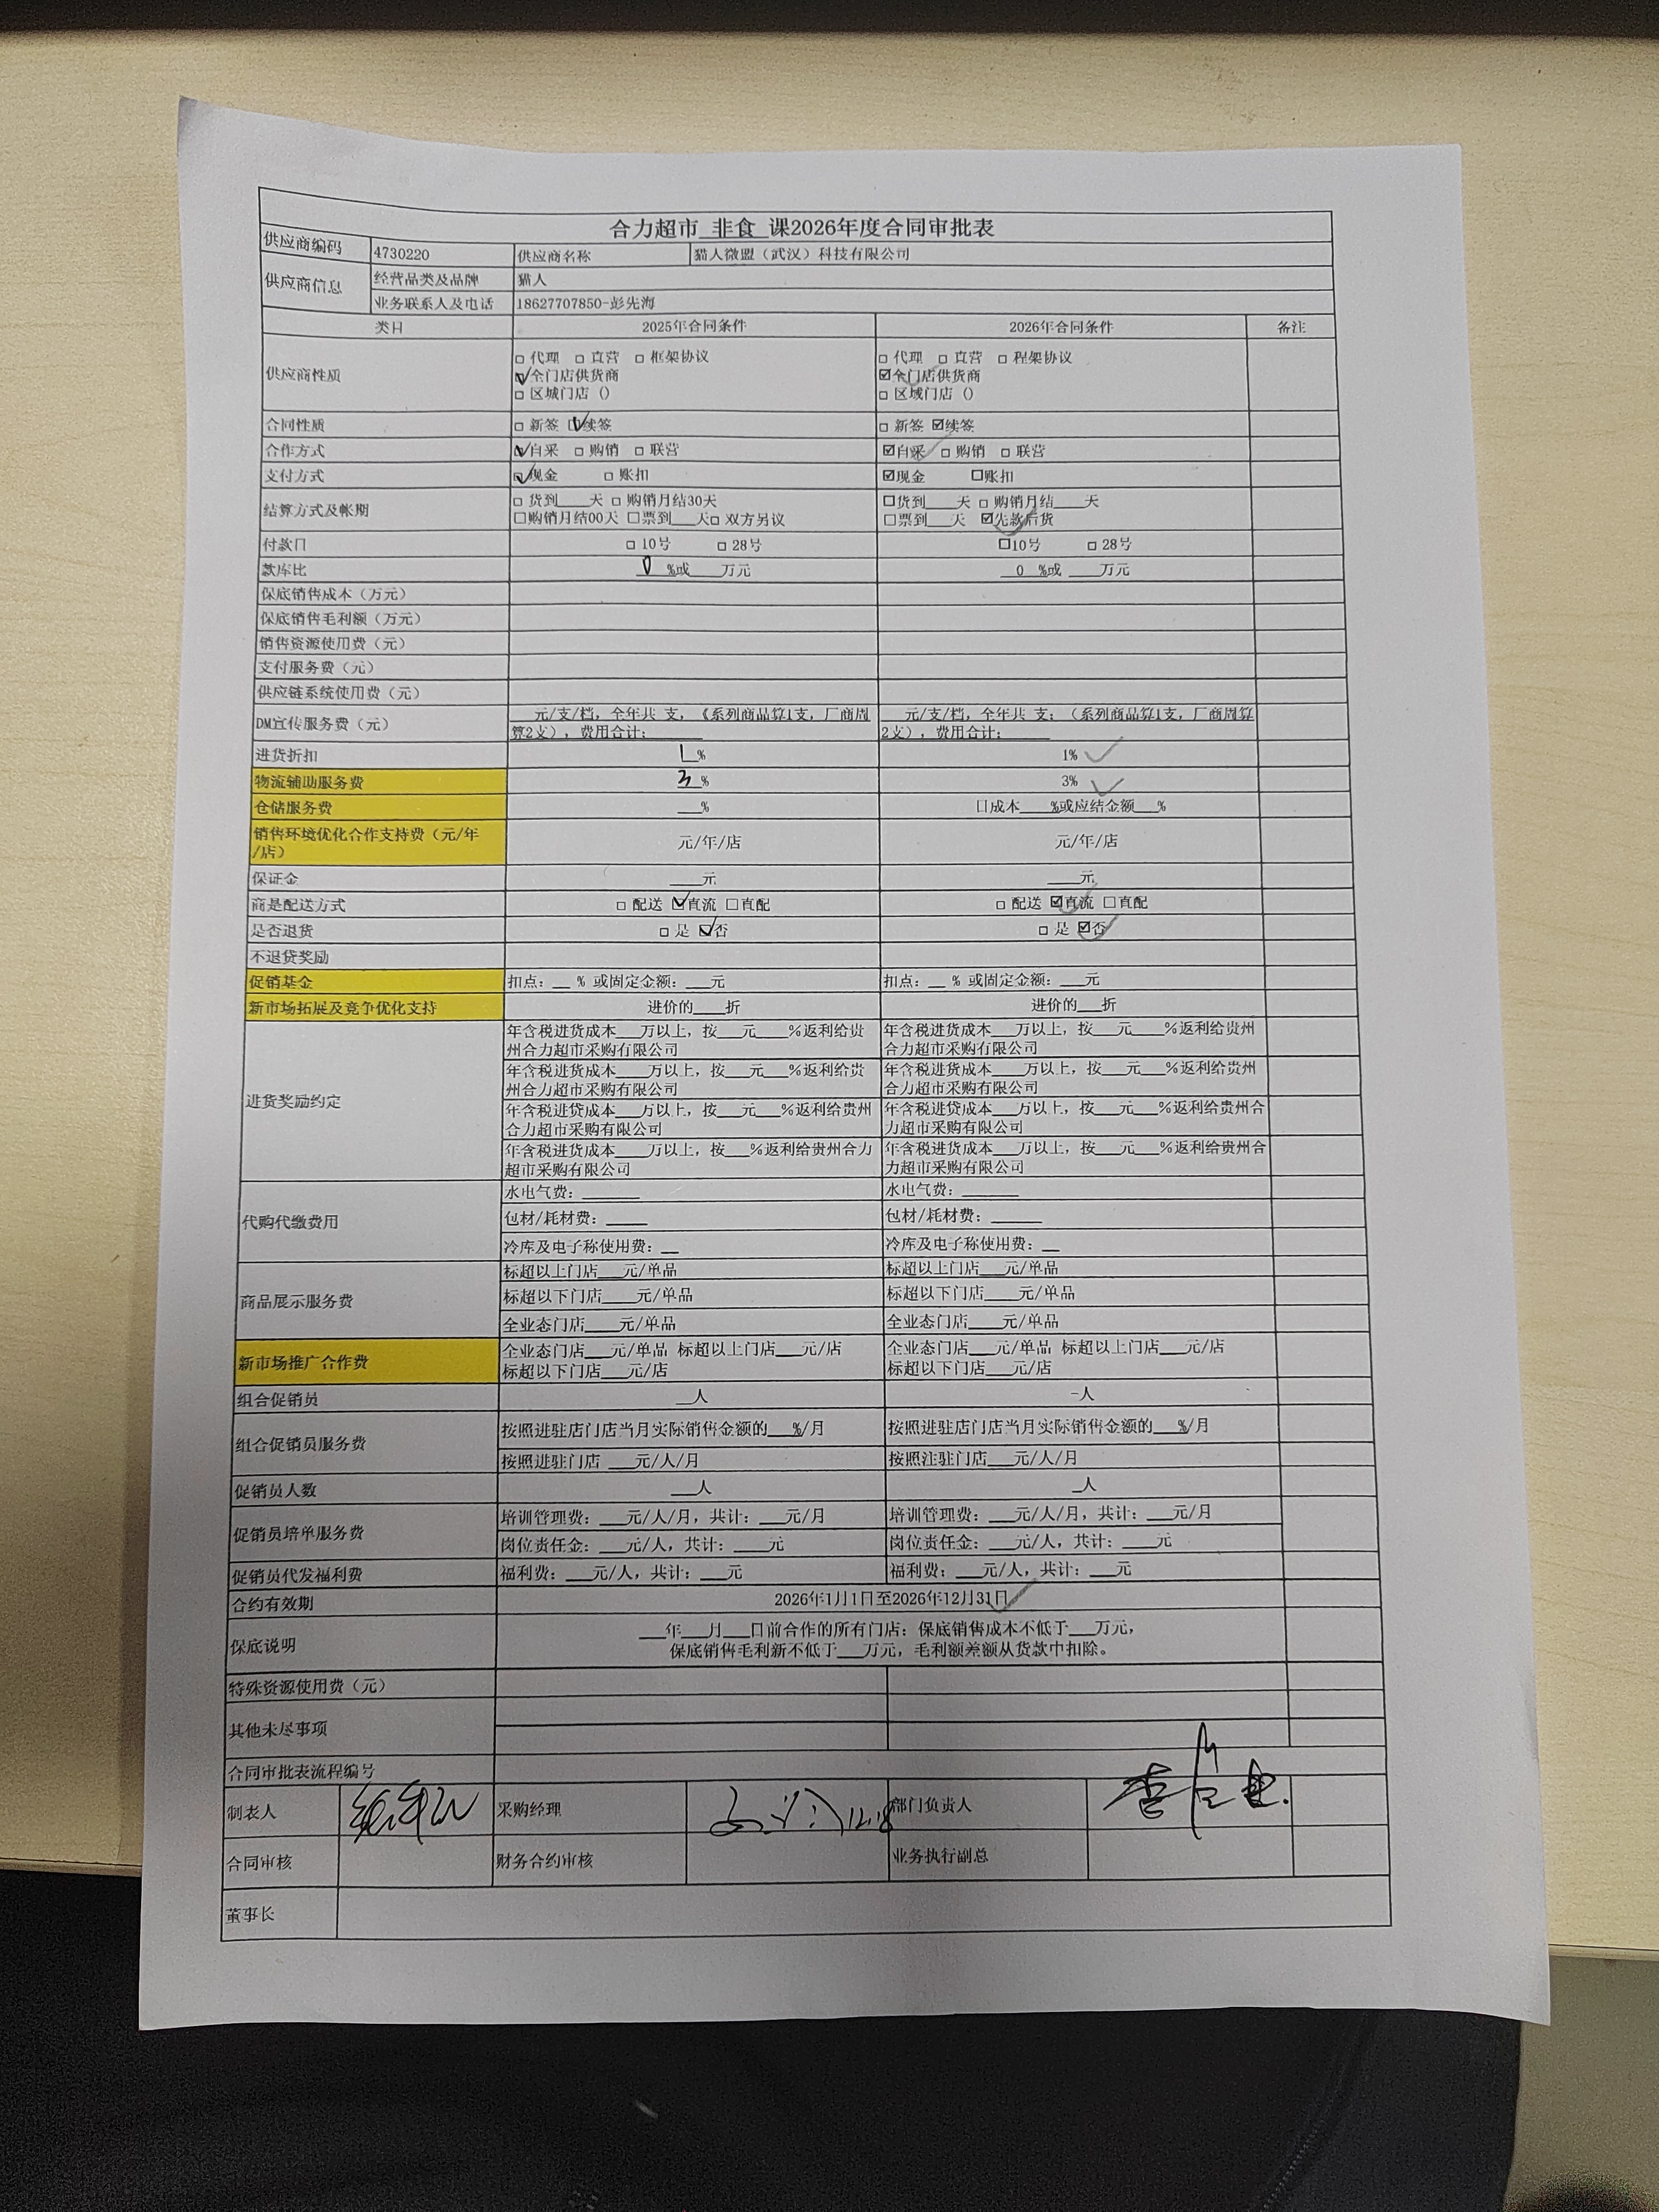 合力超市 非食 课2026年度合同审批表
供应商编码 4730220 供应商名称 猫人微盟（武汉）科技有限公司
供应商信息 经营品类及品牌 猫人
业务联系人及电话 18627707850-彭先海
类目 2025年合同条件 2026年合同条件 备注
供应商性质
□ 代理 □ 直营 □ 框架协议 □ 代理 □ 直营 □ 程架协议
☑全门店供货商 ☑全门店供货商
□ 区城门店（） □ 区域门店（）
合同性质 □ 新签 ☑续签 □ 新签 ☑续签
合作方式 ☑自采 □ 购销 □ 联营 ☑自采 □ 购销 □ 联营
支付方式 ☑现金 □ 账扣 ☑现金 □账扣
结算方式及帐期
□ 货到___天 □ 购销月结30天 □货到___天 □ 购销月结___天
□购销月结00天 □票到___天□ 双方另议 □票到___天 ☑先款后货
付款日 □ 10号 □ 28号 □10号 □ 28号
款库比 0 %或___万元 0 %或___万元
保底销售成本（万元）
保底销售毛利额（万元）
销售资源使用费（元）
支付服务费（元）
供应链系统使用费（元）
DM宣传服务费（元）
___元/支/档，全年共 支，《系列商品算1支，厂商周 ___元/支/档，全年共 支；（系列商品算1支，厂商周算
算2支），费用合计：______ 2支），费用合计：______
进货折扣 1% 1%
物流辅助服务费 3% 3%
仓储服务费 ___% 口成本___%或应结金额___%
销售环境优化合作支持费（元/年
/店） 元/年/店 元/年/店
保证金 ____元 ____元
商是配送方式 □ 配送 ☑直流 □直配 □ 配送 ☑直流 □直配
是否退货 □ 是 ☑否 □ 是 ☑否
不退贷奖励
促销基金 扣点：__ % 或固定金额：___元 扣点：__ % 或固定金额：___元
新市场拓展及竞争优化支持 进价的____折 进价的___折
进货奖励约定
年含税进货成本___万以上，按___元____%返利给贵 年含税进货成本___万以上，按___元____%返利给贵州
州合力超市采购有限公司 合力超市采购有限公司
年含税进货成本____万以上，按___元___%返利给贵 年含税进货成本____万以上，按___元___%返利给贵州
州合力超市采购有限公司 合力超市采购有限公司
年含税进贷成本___万以上，按___元___%返利给贵州 年含税进贷成本___万以上，按___元___%返利给贵州合
合力超市采购有限公司 力超市采购有限公司
年含税进货成本____万以上，按___%返利给贵州合力 年含税进货成本____万以上，按___元___%返利给贵州合
超市采购有限公司 力超市采购有限公司
代购代缴费用
水电气费：______ 水电气费：______
包材/耗材费：____ 包材/耗材费：_____
冷库及电子称使用费：__ 冷库及电子称使用费：__
商品展示服务费
标超以上门店___元/单品 标超以上门店___元/单品
标超以下门店____元/单品 标超以下门店____元/单品
全业态门店____元/单品 全业态门店____元/单品
新市场推广合作费
全业态门店___元/单品 标超以上门店___元/店 全业态门店___元/单品 标超以上门店___元/店
标超以下门店___元/店 标超以下门店___元/店
组合促销员 __人 -人
组合促销员服务费
按照进驻店门店当月实际销售金额的___%/月 按照进驻店门店当月实际销售金额的___%/月
按照进驻门店 ___元/人/月 按照注驻门店___元/人/月
促销员人数 ___人 __人
促销员培单服务费
培训管理费：___元/人/月，共计：___元/月 培训管理费：___元/人/月，共计：___元/月
岗位责任金：___元/人，共计：____元 岗位责任金：___元/人，共计：____元
促销员代发福利费 福利费：___元/人，共计：___元 福利费：___元/人，共计：___元
合约有效期 2026年1月1日至2026年12月31日
保底说明
___年___月___日前合作的所有门店：保底销售成本不低于___万元，
保底销售毛利新不低于___万元，毛利额差额从货款中扣除。
特殊资源使用费（元）
其他未尽事项
合同审批表流程编号
制表人 采购经理 12.18 部门负责人
合同审核 财务合约审核 业务执行副总
董事长